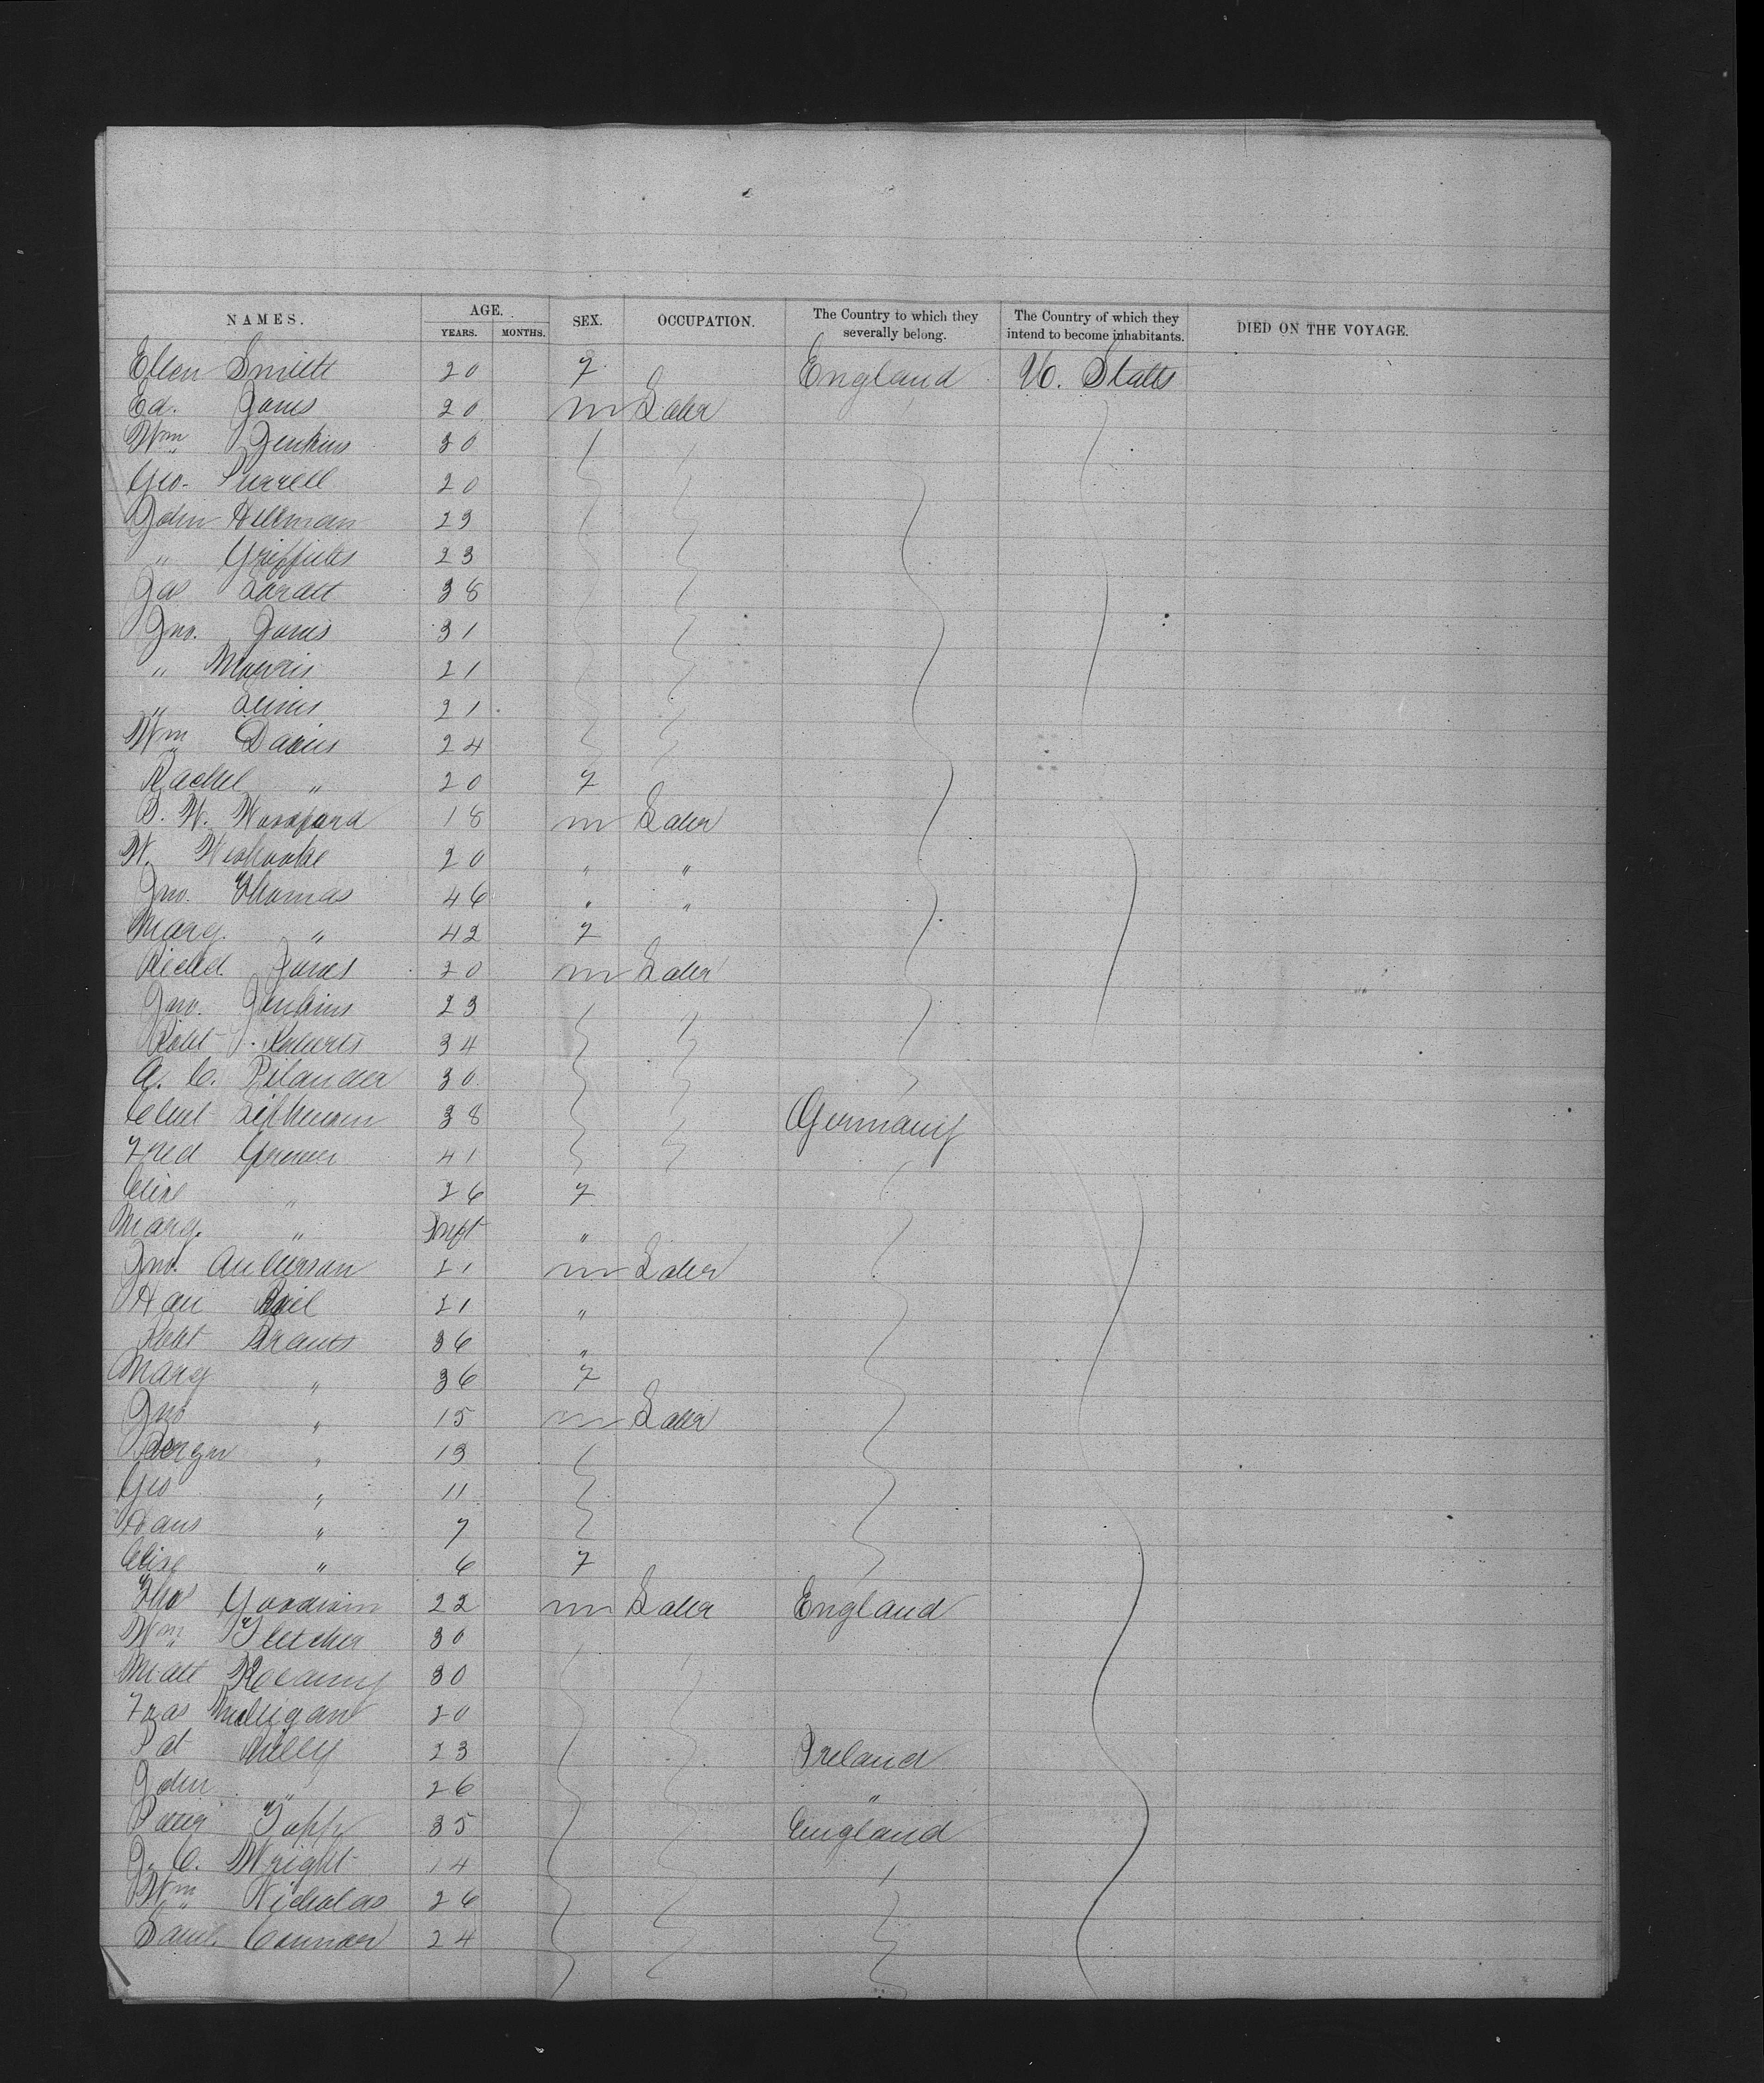 NAMES. AGE. SEX. OCCUPATION. The Country to which they severally belong. The Country of which they intend to become inhabitants. DIED ON THE VOYAGE.
YEARS. MONTHS.
Ellen Smith 20 F England U. States
Ed. Jones 20 m Labr
Wm Jenkins 30
Geo. Purrell 20
John Hillman 23
" Griffiths 23
Jas 38
Jno. Jones 31
" Morris 21
" Lewis 21
Wm Davies 24
Rachel " 20 F
B. W. Woodford 18 m Labr
W. 20 " "
Jno. Thomas 46 " "
Marg. " 42 F
Richd Jones 20 m Labr
Jno. Jenkins 23
Robt Roberts 34
A. C. Rilander 30
38 Germany
Fred 41
Elise " 26 F
Marg. " Inft "
Jno. Anderson 21 m Labr
21 "
36 "
Mary " 36 F
Jno " 15 m Labr
" 13
Geo " 11
Hans " 7
Elise " 6 F
Thos Goodwin 22 m Labr England
Wm Fletcher 30
Matt 30
Fras Mulligan 20
Pat 23 Ireland
John " 26 "
35 England
J. C. Wright 14
Wm Nicholas 26
Saml. Connor 24